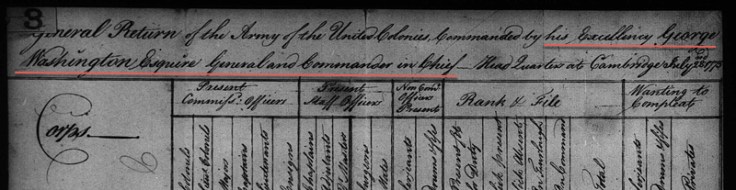 8
General Return of the Army of the United Colonies, Commanded by his Excellency George
Washington Esquire General and Commander in Chief Head Quarter at Cambridge July 1775
Present Commiss. Officers
Present Staff Officers
Non Com Officers Present
Rank & File
Wanting to Compleat
Corps
Colonels
Lieut Colonels
Majors
Captains
Lieutenants
Ensigns
Chaplains
Adjutants
Surgeons
Mates
Present fit for Duty
Sick Present
Sick Absent
On Furlough
On Command
Total
Privates